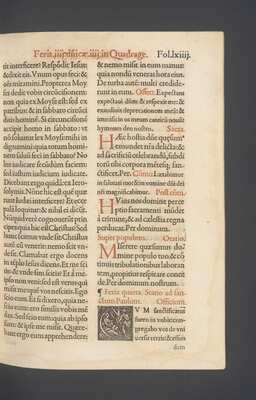 Feria .iij. dñicæ .iiij. in Quadrage.   Fol.lxiiij.
tit interficere? Respõdit Iesus
& dixit eis. Vnum opus feci: &
oẽs miramini. Propterea Moy
ses dedit vobis circuncisionem:
non quia ex Moyse est: sed ex
patribus: & in sabbato circũci
ditis hominẽ. Si circuncisionẽ
accipit homo in sabbato: vt
nõ soluatur lex Moysi: mihi in
dignamini quia totum homi
nem saluũ feci in sabbato? No
lite iudicare secũdum faciem:
sed iustum iudicium iudicate.
Dicebant ergo quidã ex Iero
solymis. Nõne hic est quẽ quæ
runt Iudæi interficere? Et ecce
palã loquitur: & nihil ei dicũt.
Nunquid vere cognouerũt prin
cipes quia hic est Christus? Sed
hunc scimus vnde sit. Christus
autẽ cũ venerit: nemo scit vn
de sit. Clamabat ergo docens
in tẽplo Iesus dicens. Et me sci
tis: & vnde sim scitis: Et a me
ipso non veni: sed est verus qui
misit me: quẽ vos nescitis. Ego
scio eum. Et si dixero, quia ne
scio eum: ero similis vobis mẽ
dax. Sed scio eum: quia ab ipso
sum: & ipse me misit. Quære
bant ergo eum apprehendere:
& nemo misit in eum manus:
quia nondũ venerat hora eius.
De turba autẽ: multi credide
runt in eum. Offert. Expectans
expectaui dñm: & respexit me: &
exaudiuit deprecationem meã: &
immisit in os meum canticũ nouũ:
hymnum deo nostro. Sacra.
HÆc hostia dñe quæsum⁹
emundet nr̃a delicta: &
ad sacrificiũ celebrandũ, subdi
torũ tibi corpora mẽtesq; san-
ctificet. Per. Cõmu. Lætabimur
in salutari tuo: & in nomine dñi dei
nr̃i magnificabimur. Post cõm.
HVius nos domine perce
ptio sacramenti mũdet
a crimine, & ad cælestia regna
perducat. Per dominum.
Super populum. Oratio.
MIserere quæsumus do-
mine populo tuo: & cõ
tinuis tribulationibus laboran
tem, propitius respirare conce
de. Per dominum nostrum.
¶ Feria quarta. Statio ad san-
ctum Paulum. Officium.
CVM sanctificatus
fuero in vobis: con-
gregabo vos de vni
uersis terris: & effun
dam